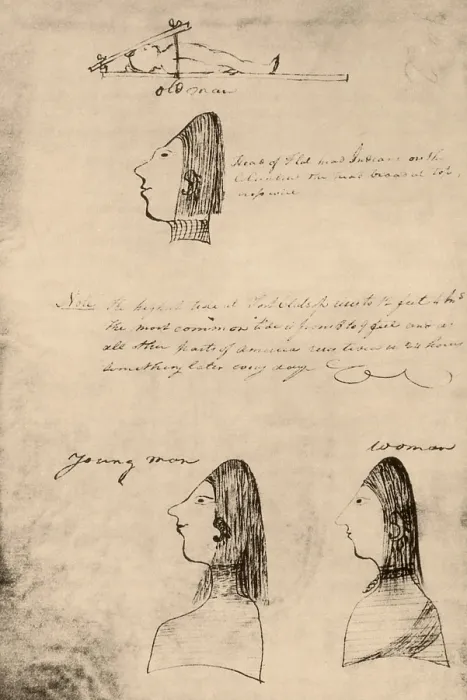 old man
Head of Flat head Indians on the
Columbia
Note the highest tide at Fort Clatsop feet
the most common tide is from to 9 feet and as
all other parts of America runs twice in 24 hours
something later every day
Young man
Woman